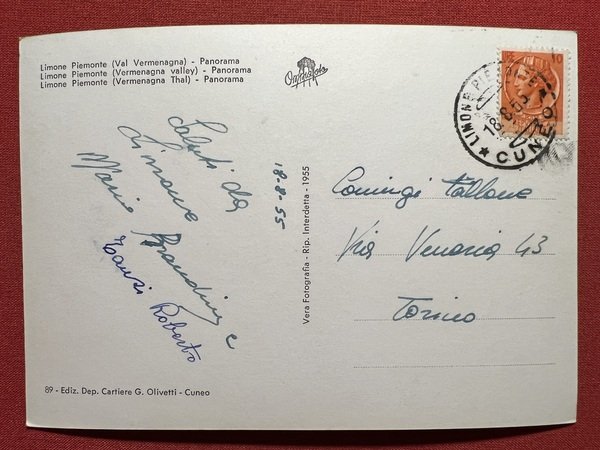 Limone Piemonte (Val Vermenagna) - Panorama
Limone Piemonte (Vermenagna valley) - Panorama
Limone Piemonte (Vermenagna Thal) - Panorama
LIMONE PIEMONTE
18.8.55
CUNEO
10
Saluti da
Limone
Mario
Roberto
18-8-55
Vera Fotografia - Rip. Interdetta - 1955
Coniugi Tallone
Via Venaria 43
Torino
89 - Ediz. Dep. Cartiere G. Olivetti - Cuneo